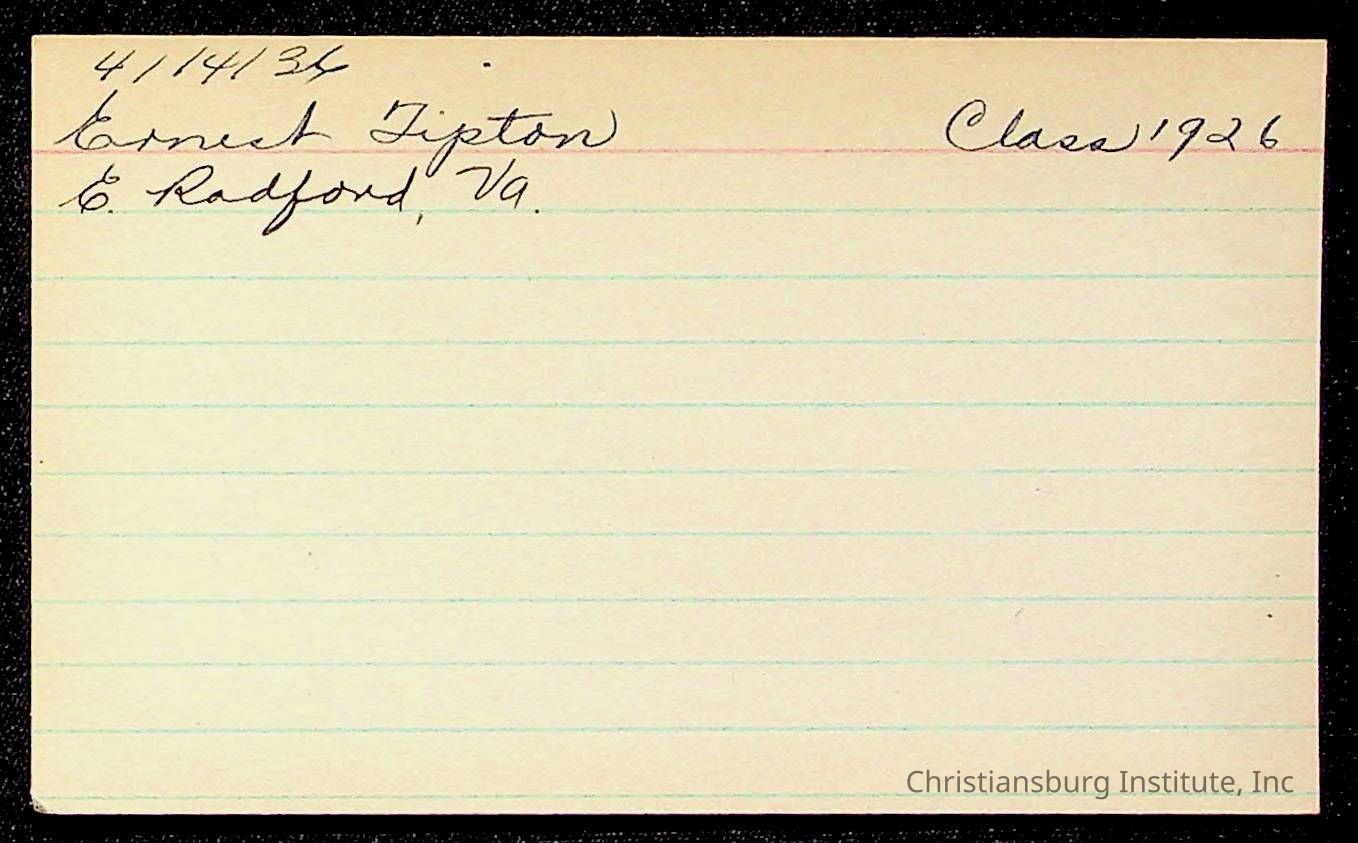 4/14/36
Ernest Tipton Class 1926
E. Radford, Va.
Christiansburg Institute, Inc